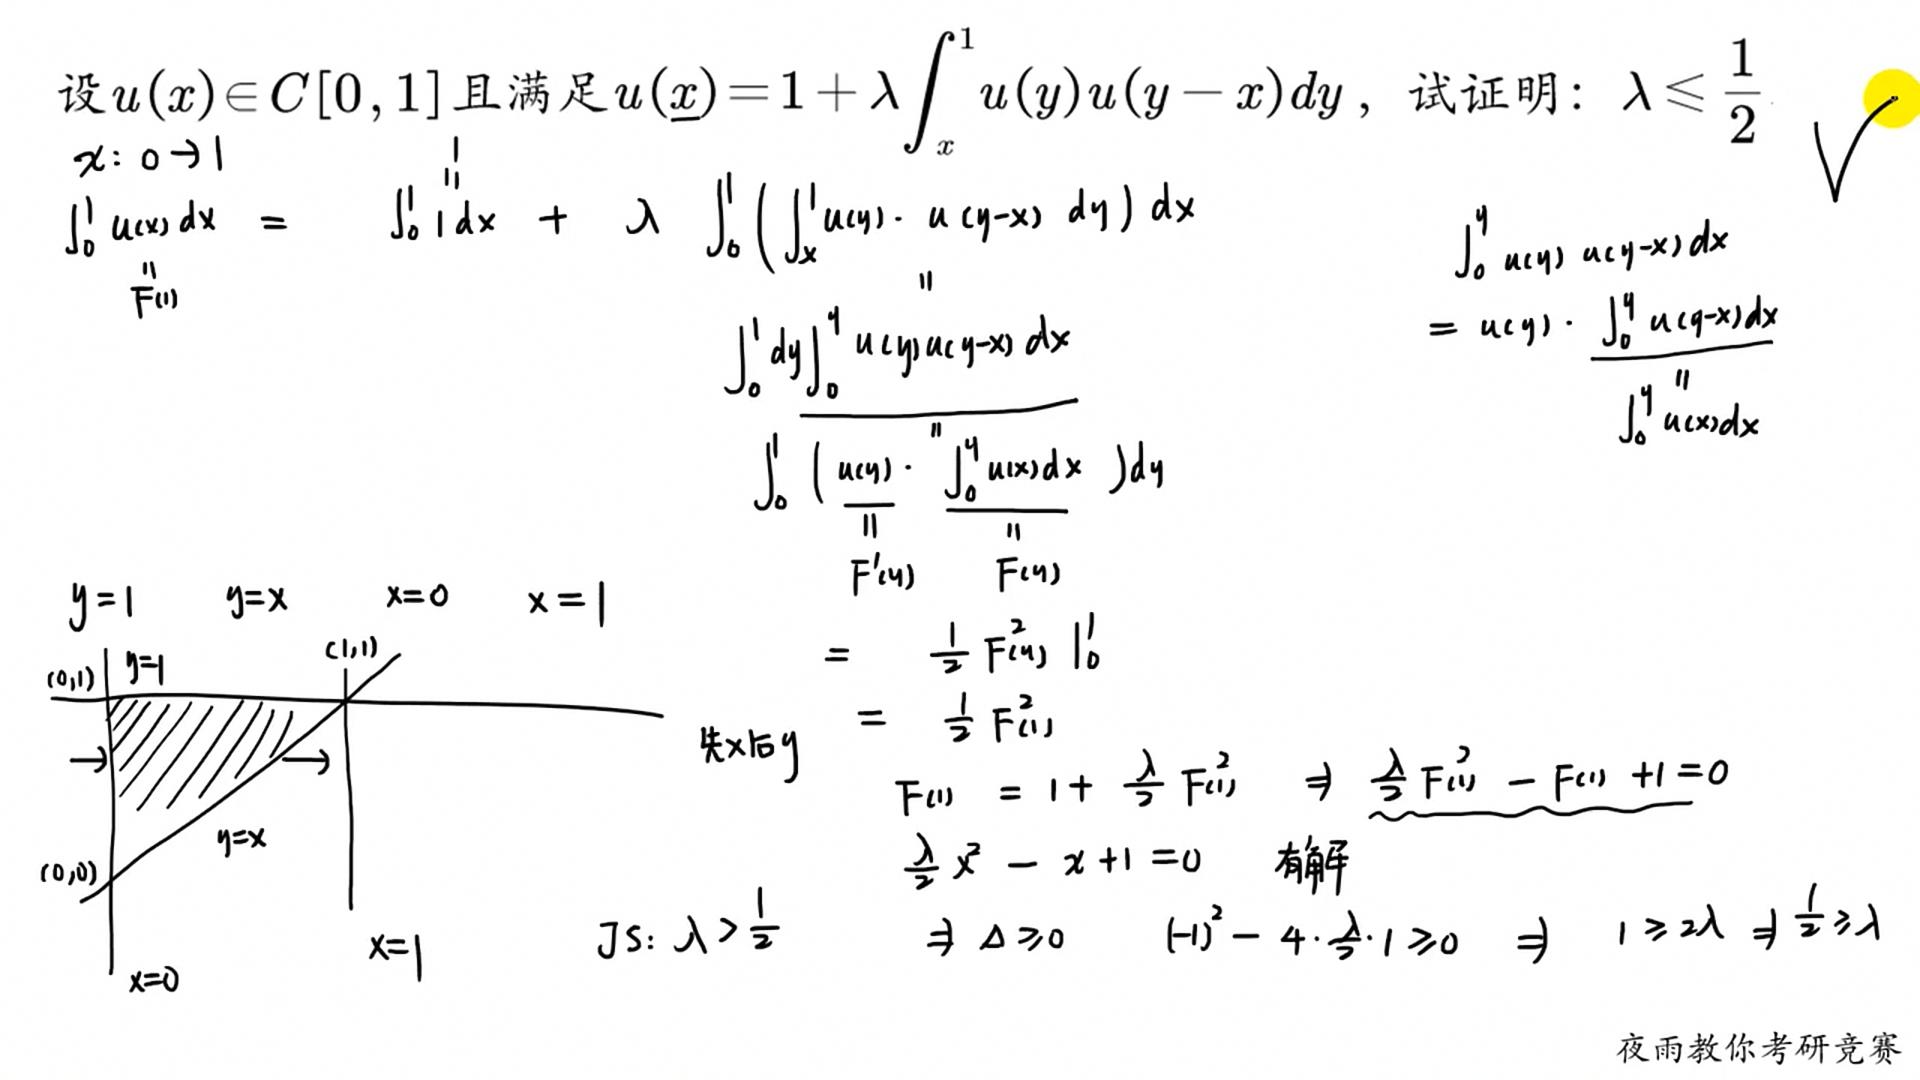 设u(x)∈C[0,1]且满足u(x)=1+λ∫_x^1 u(y)u(y−x)dy, 试证明: λ⩽1/2
x: 0→1
∫_0^1 u(x)dx = ∫_0^1 1dx + λ ∫_0^1 (∫_x^1 u(y)·u(y-x) dy) dx
= 1
= F(1)
=
∫_0^1 dy∫_0^y u(y)u(y-x) dx
=
∫_0^1 (u(y)·∫_0^y u(x)dx)dy
= =
F'(y) F(y)
= 1/2 F²(y) |_0^1
= 1/2 F²(1)
∫_0^y u(y) u(y-x)dx
= u(y)·∫_0^y u(y-x)dx
=
∫_0^y u(x)dx
y=1 y=x x=0 x=1
(0,1) y=1 (1,1)
y=x
(0,0)
x=0
x=1
先x后y
F(1) = 1+ λ/2 F²(1) ⇒ λ/2 F²(1) - F(1) +1=0
λ/2 x² - x+1=0 有解
JS: λ>1/2
⇒ Δ≥0 (-1)² - 4·λ/2·1≥0 ⇒ 1≥2λ ⇒ 1/2≥λ
夜雨教你考研竞赛